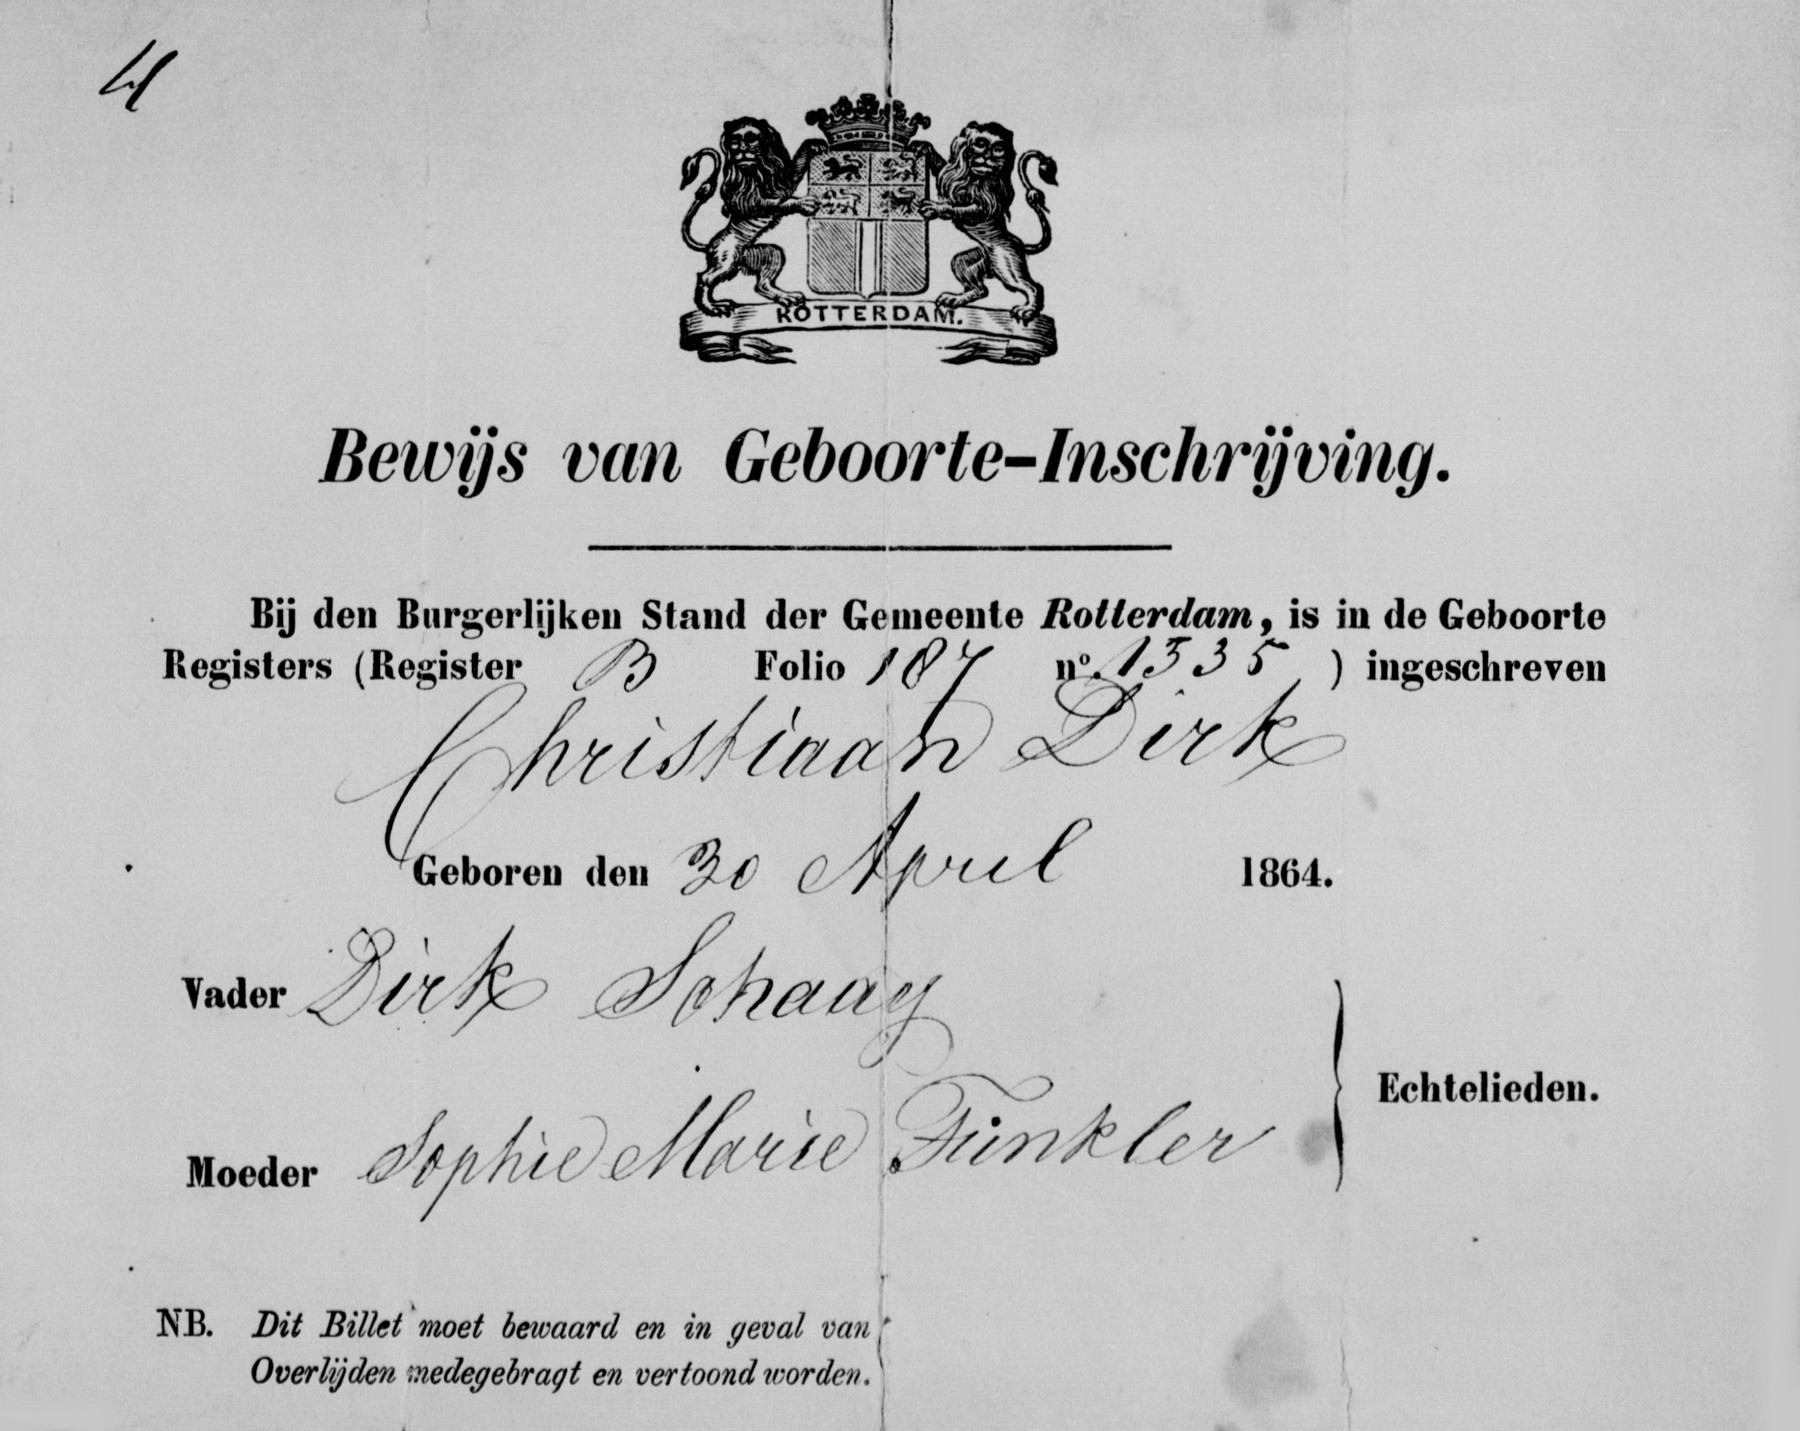 ROTTERDAM.
Bewijs van Geboorte-Inschrijving.
Bij den Burgerlijken Stand der Gemeente Rotterdam, is in de Geboorte
Registers (Register B Folio 187 no. 1335 ) ingeschreven
Christiaan Dirk
Geboren den 30 April 1864.
Vader Dirk Schaay
Echtelieden.
Moeder Sophie Marie Funkler
NB. Dit Billet moet bewaard en in geval van
Overlijden medegebragt en vertoond worden.